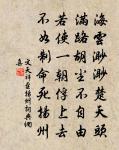 海雲渺渺楚天頭
滿路胡塵不自由
若使一朝俘上去
不如制命死揚州
文天祥至揚州詞典網
集